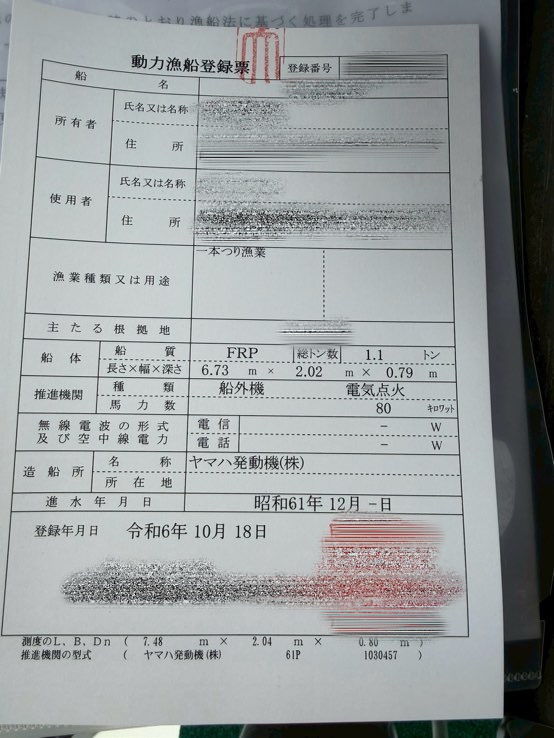 とおり漁船法に基づく処理を完了しま
動力漁船登録票
登録番号
船 名
所有者
氏名又は名称
住 所
使用者
氏名又は名称
住 所
漁業種類又は用途
一本つり漁業
主たる根拠地
船体
船質 FRP 総トン数 1.1 トン
長さ×幅×深さ 6.73 m × 2.02 m × 0.79 m
推進機関
種類 船外機 電気点火
馬力数 80 キロワット
無線電波の形式
及び空中線電力
電信 - W
電話 - W
造船所
名称 ヤマハ発動機(株)
所在地
進水年月日 昭和61年 12月 -日
登録年月日 令和6年 10月 18日
測度のL、B、Dn ( 7.48 m × 2.04 m × 0.80 m )
推進機関の型式 ( ヤマハ発動機(株) 61P 1030457 )